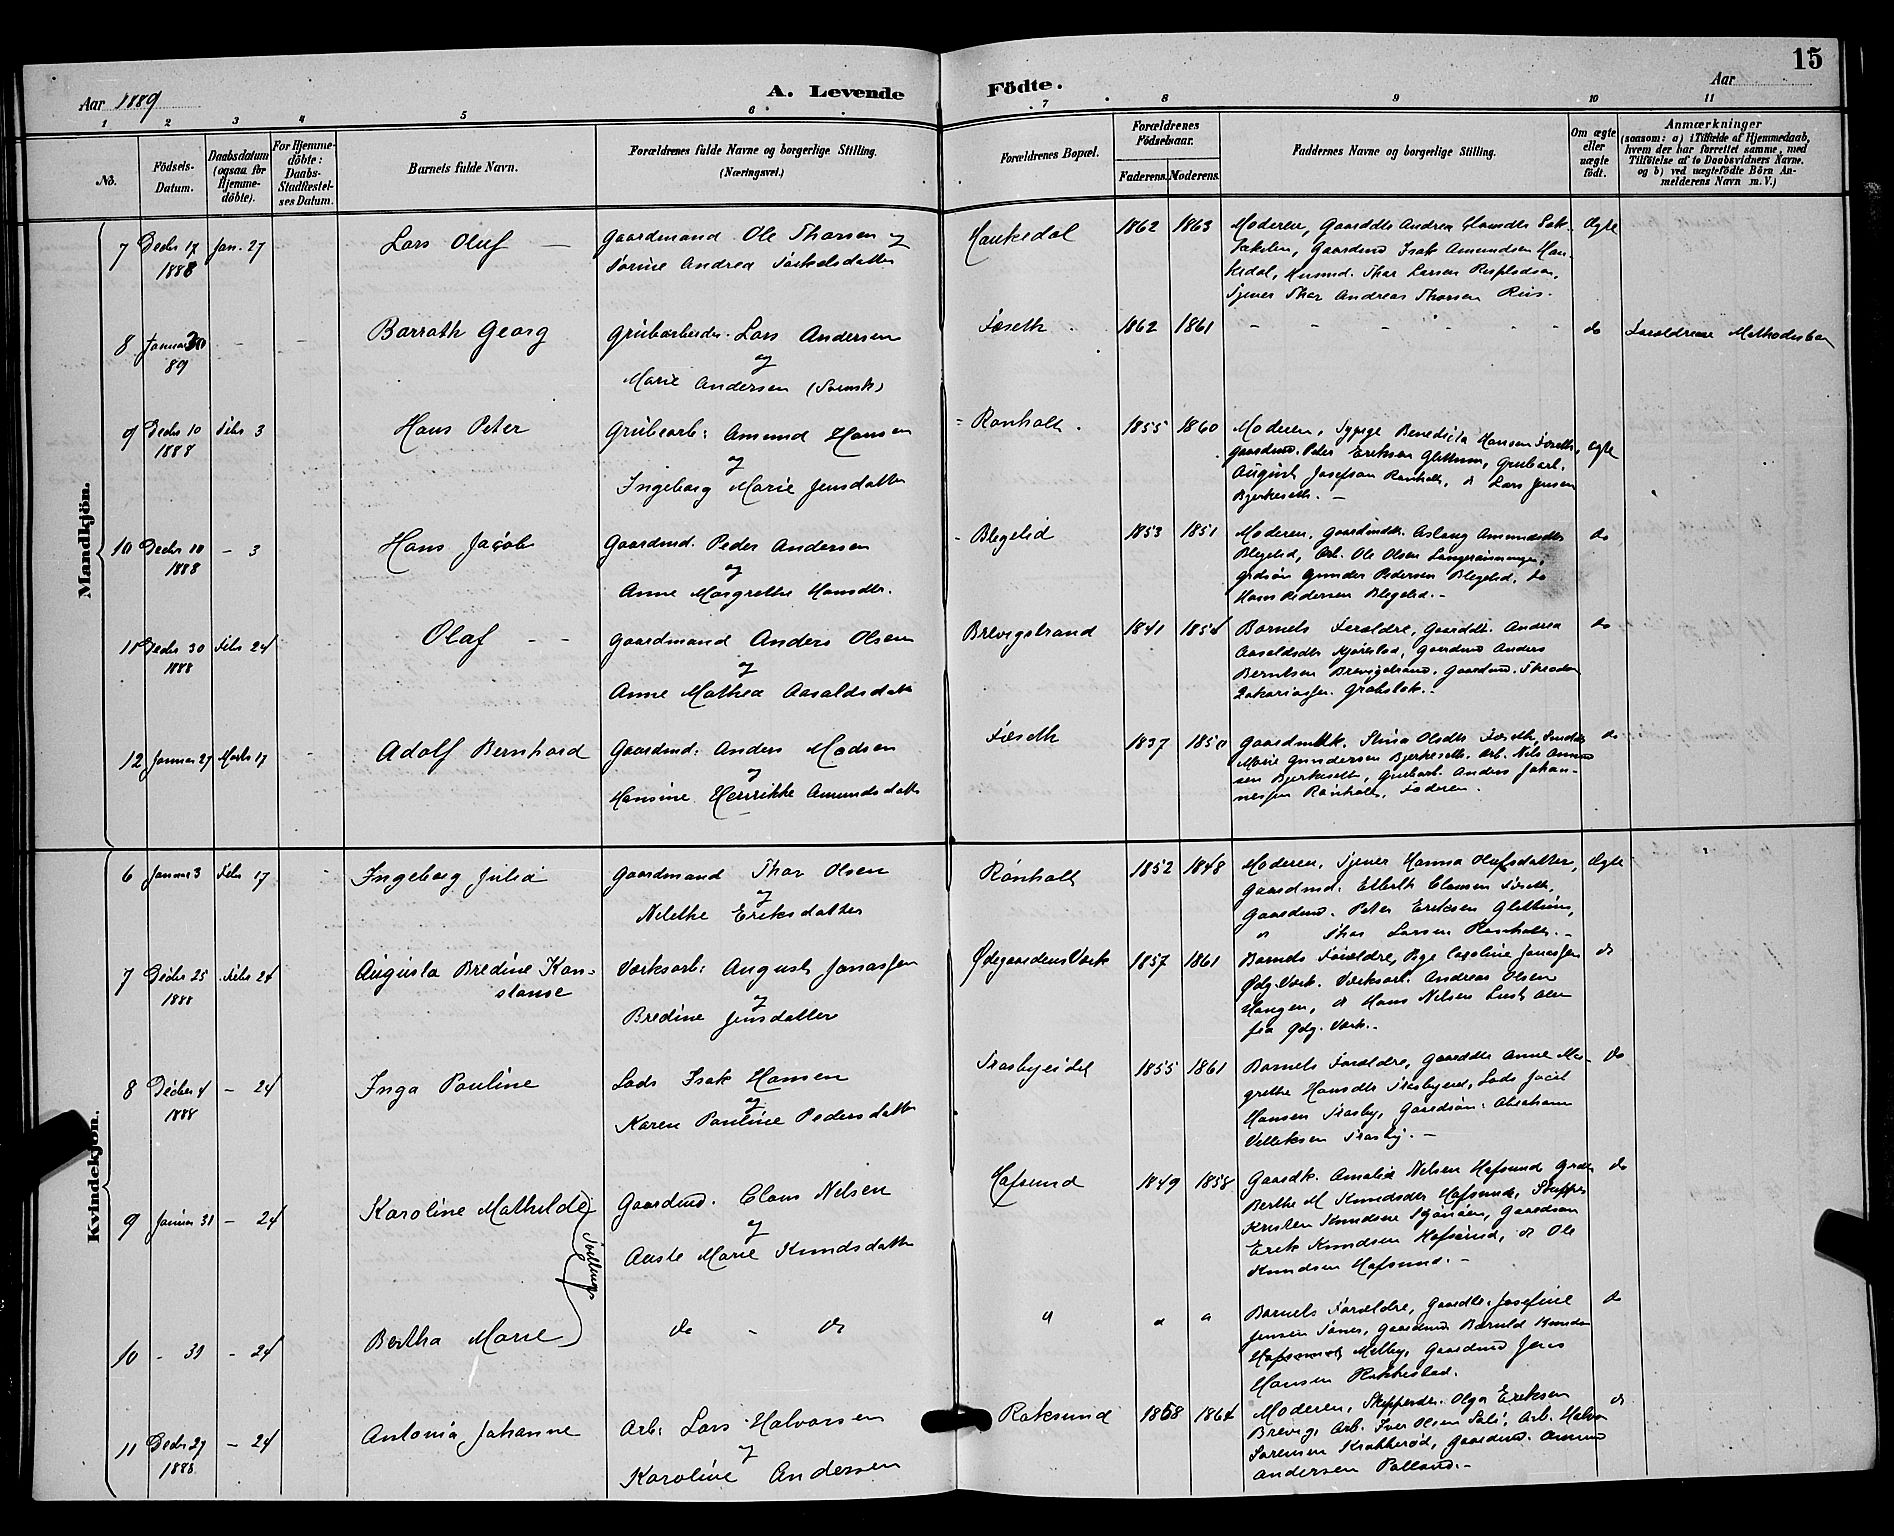 15
Aar 1889
A. Levende Födte.
Aar
1 2 3 4 5 6 7 8 9 10 11
No.
Födsels-Datum.
Daabsdatum (ogsaa for Hjemme-döbte).
For Hjemme-döbte: Daabs-Stadfæstel-ses Datum.
Barnets fulde Navn.
Forældrenes fulde Navne og borgerlige Stilling.
(Næringsvei.)
Forældrenes Bopæl.
Forældrenes Födselsaar.
Faderens. Moderens.
Faddernes Navne og borgerlige Stilling.
Om ægte eller uægte födt.
Anmærkninger
(saasom: a) i Tilfælde af Hjemmedaab, hvem der har forrettet samme, med Tilföielse af to Daabsvidners Navne, og b) ved uægtefödte Börn An-melderens Navn m. V.)
Mandkjön.
7 Decbr 17 1888 Jan. 27 Lars Oluf – Gaardmand Ole Thorsen og
Haukedal 1862 1863 Moderen, Gaarddtr Andrea
Gaardmd Isak Amundsen Hau-
kedal, Thor Larsen
Tjener Thor Andreas Thorsen Riis. Ægte
8 Januar 89 Barrath Georg Grubarbeider Lars Andersen
og
Marie Andersen (Svensk)
Fosseth 1862 1861 do Forældrene Methodister
9 Decbr 10 1888 Febr 3 Hans Peter Grubearb: Amund Hansen
og
Ingeborg Marie Jensdatter
Rønholt. 1855 1860 Moderen, Benedicta Hansen
Gaardmd. Peter Eriksen Glittum, Grubarb.
August Josefsen Rønholt, & Lars Jensen
Bjerkeseth. – Ægte
10 Decbr 10 1888 – 3 Hans Jacob Gaardmd. Peder Andersen
og
Anne Margrethe Hansdtr.
Blegelid 1853 1851 Moderen, Aslaug Amundsdtr
Blegelid, Arb. Ole Olsen
Gunder Pedersen Blegelid, do
Hans Pedersen Blegelid. – do
11 Decbr 30 1888 Febr 24 Olaf – – Gaardmand Anders Olsen
og
Anne Mathea Aasoldsdatter
Brevigstrand 1841 1854 Barnets Forældre, Gaarddtr. Andrea
Aasoldsdtr Gaardmd Anders
Berntsen Brevigstrand, Gaardmd. Theodor
Zakariassen do
12 Januar 27 Marts 17 Adolf Bernhard Gaardmd: Anders Madsen
og
Hansine Henrikke Amundsdatter
Fosseth 1837 1850 Stina Olsdtr Fosseth,
Marie Gundersen Bjerkeseth, Arb. Nils Amund-
sen Bjerkeseth, Grubarb. Anders Johan-
nessen Rønholt, Faderen. do
Kvindekjön.
6 Januar 3 Febr 17 Ingeborg Julia Gaardmand Thor Olsen
og
Nilethe Eriksdatter
Rønholt 1852 1848 Moderen, Tjener Hanna Olufsdatter,
Gaardmd. Clausen
Gaardmd. Peter Eriksen Glittum,
do Thor Larsen Rønholt. – Ægte
7 Decbr 25 1888 Febr 24 Augusta Bredine Kon-
stanse Værksarb: August Jonassen
og
Bredine Jensdatter
Ødegaardens Værk 1857 1861 Barnets Forældre, Pige Caroline Jonassen
Ødg. Værk. Værksarb. Andreas Olsen
Haugen, & Hans Nilsen
fra Ødg. Værk. – do
8 Decber 4 1888 – 24 Inga Pauline Lods Isak Hansen
og
Karen Pauline Pedersdatter
Trosbyeidet 1855 1861 Barnets Forældre, Gaarddtr Anne Mar-
grethe Hansdtr Lods Jacob
Hansen Trosby, Gaardsøn: Abraham
Trosby. – do
9 Januar 31 – 24 Karoline Mathilde Tvillinger Gaardmd. Claus Nilsen
og
Aaste Marie Knudsdatter
Hafsund 1849 1858 Gaardk. Amalia Nilsen Hafsund
Berthe M Knudsdtr Hafsund, Skipper
Kristen Knudsen Gaardsøn
Erik Knudsen Hafsund, & Ole
Knudsen Hafsund. – do
10 – 31 – 24 Bertha Marie do – do
Barnets Forældre, Gaarddtr. Josefine
Jensen Gaardmd
Melby, Gaardmd Jens
Hansen Rakkestad. do
11 Decbr 27 1888 – 24 Antonia Johanne Arb: Lars Halvorsen
og
Karoline Andersen
Roksund 1858 1864 Moderen, Skipperdtr. Olga Eriksen
Brevig, Arb. Iver Olsen Arb. Halvor
Sørensen Krabberød, Gaardmd. Amund
Andersen – do